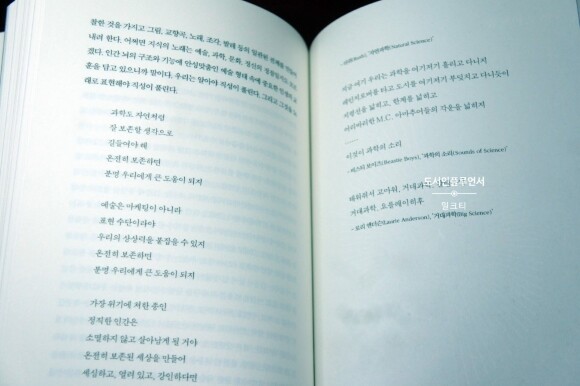 참한 것을 가지고 그림, 교향곡, 노래, 조각, 형태 등의 일관된 전체를
내려 한다. 어쩌면 지식의 노래는 예술, 과학, 문화, 정신의
겼다. 인간 뇌의 구조와 기능에 안성맞춤인 예술 형태 속에 중요한 인생의 교
훈을 담고 있으니까 말이다. 우리는 알아야 직성이 풀린다. 그리고 그것을 노
래로 표현해야 직성이 풀린다.
과학도 자연처럼
잘 보존할 생각으로
길들여야 해
온전히 보존하면
분명 우리에게 큰 도움이 되지
예술은 마케팅이 아니라
표현 수단이라야
우리의 상상력을 붙잡을 수 있지
온전히 보존하면
분명 우리에게 큰 도움이 되지
가장 위기에 처한 종인
정직한 인간은
소멸하지 않고 살아남게 될 거야
온전히 보존된 세상을 만들어
세심하고, 열려 있고, 강인하다면
- 러쉬(Rush), '자연과학(Natural Science)'
지금 여기 우리는 과학을 여기저기 흘리고 다니지
지평선을 넓히고, 한계를 넓히고
이것이 과학의 소리
- 비스티 보이즈(Beastie Boys), '과학의 소리(Sounds of Science)'
도서인플루언서
밀크티
거대과학, 요들레이히후
- 로리 앤더슨(Laurie Anderson), '거대과학(Big Science)'